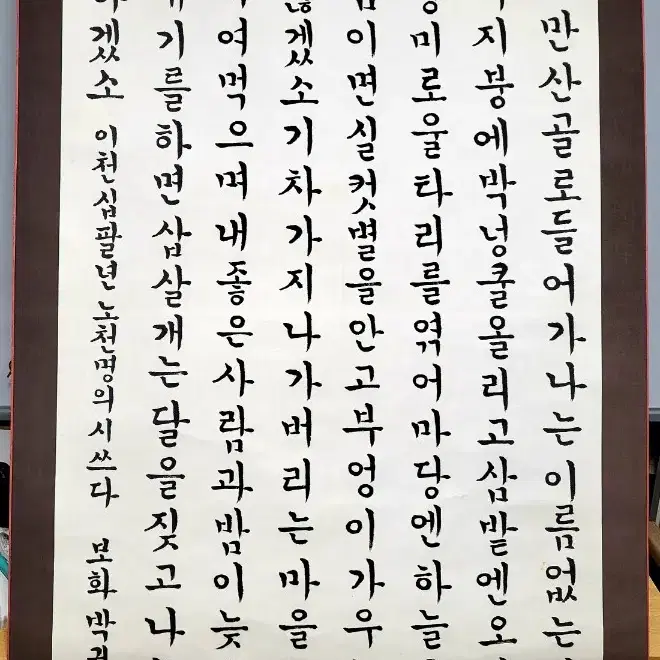 만산골로들어가나는이름없는
지붕에박넝쿨올리고삼밭엔오
미로울타리를엮어마당엔하늘
이면실컷별을안고부엉이가우
겠소기차가지나가버리는마을
여먹으며내좋은사람과밤이늦
기를하면삽살개는달을짖고나
겠소 이천십팔년노천명의시쓰다 보화박